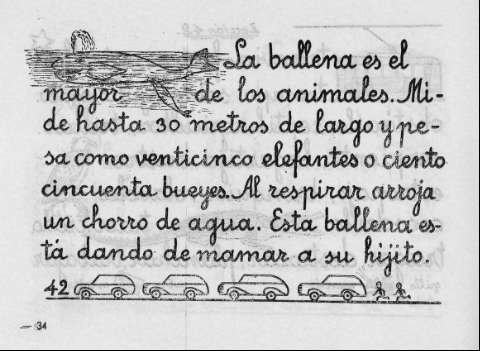 La ballena es el
mayor de los animales. Mi-
de hasta 30 metros de largo y pe-
sa como venticinco elefantes o ciento
cincuenta bueyes. Al respirar arroja
un chorro de agua. Esta ballena es-
tá dando de mamar a su hijito.
42
— 34